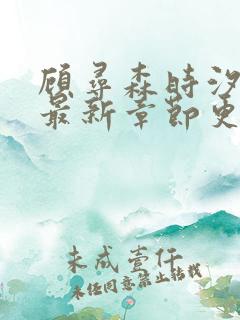 顾寻森时汐
最新章节更
未成壹仟
未经同意禁止转载